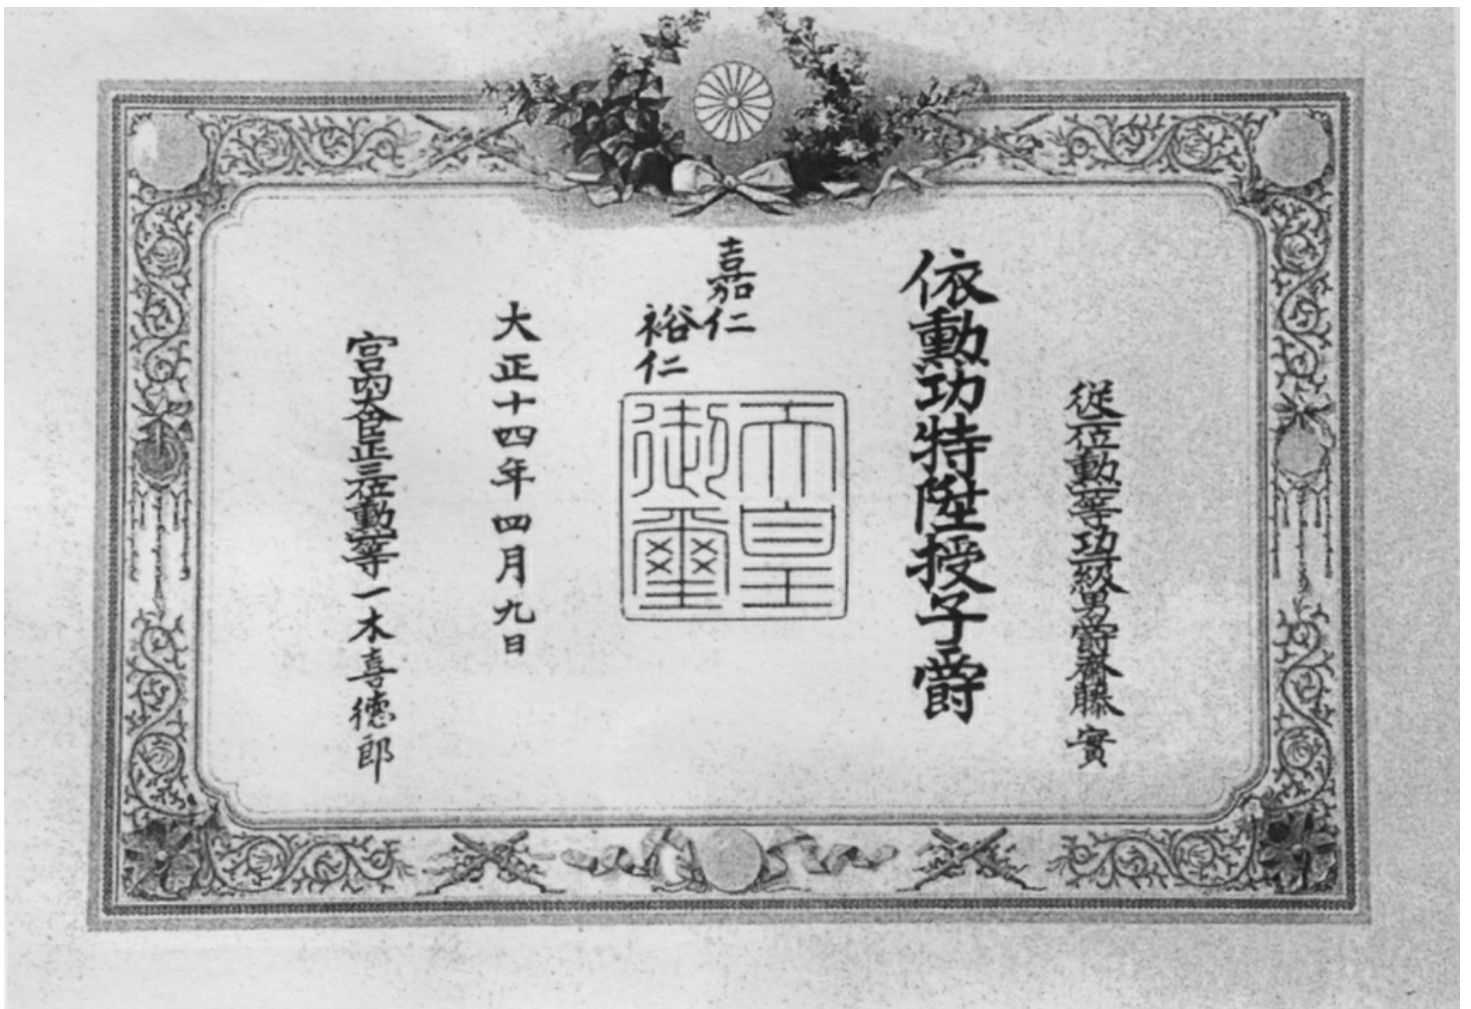 從二位勳一等功二級男爵齋藤實
依勳功特陞授子爵
嘉仁
裕仁
天皇
御璽
大正十四年四月九日
宮内大臣正三位勳一等一木喜德郎